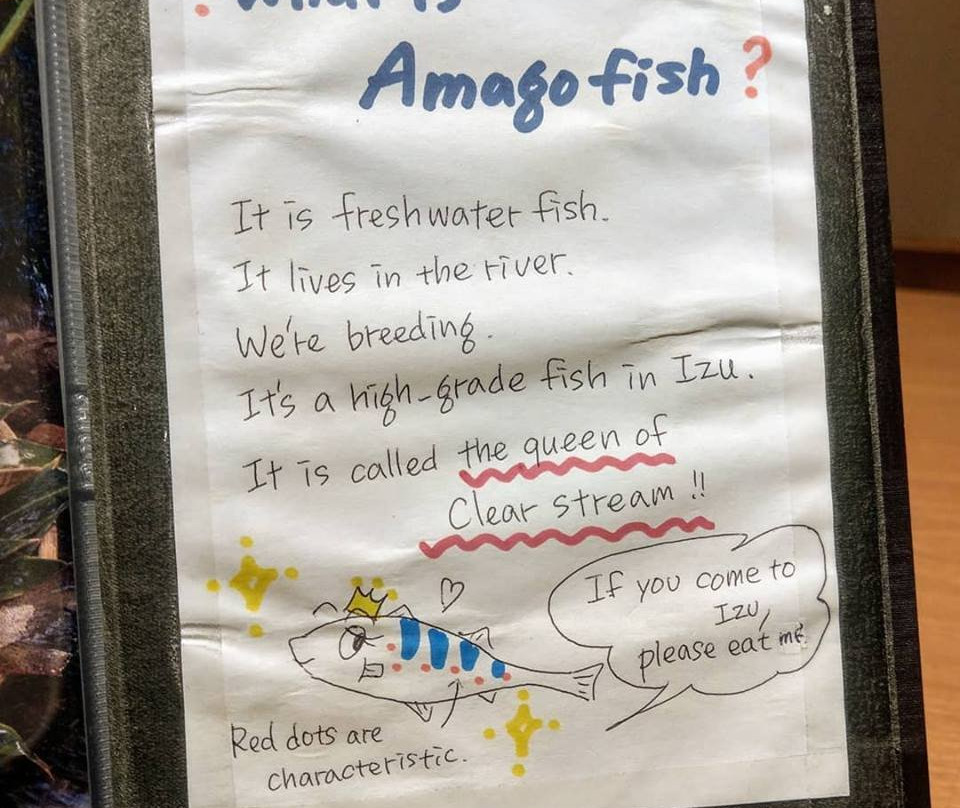 What is
Amago fish?
It is freshwater fish.
It lives in the river.
We're breeding.
It's a high-grade fish in Izu.
It is called the queen of
Clear stream!!
If you come to
Izu,
please eat me
Red dots are
characteristic.